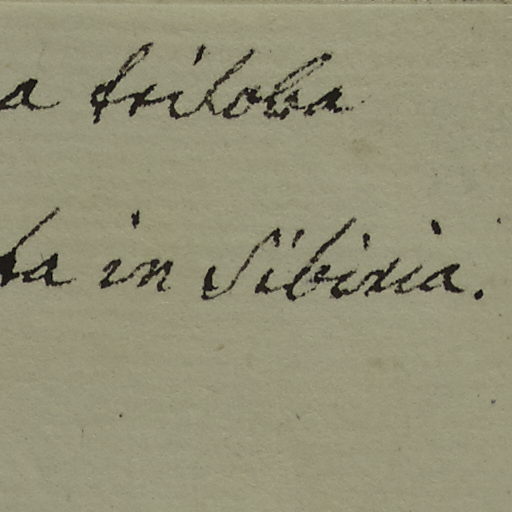 a triloba
ta in Sibiria.